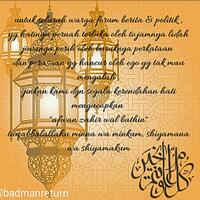 untuk seluruh warga forum berita & politik ,
yg hatinya pernah terluka oleh tajamnya lidah
jiwanya perih oleh buruknya perkataan
dan perasaan yg hancur oleh ego yg tak mau
mengalah
ijinkan kami dgn segala kerendahan hati
mengucapkan
"afwan zahir wal bathin"
taqabbalallahu minna wa minkum, shiyamana
wa shiyamakum
©badmanreturn